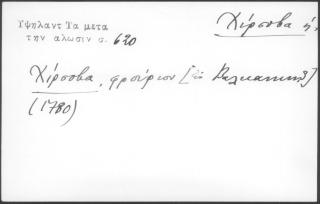 Χίρσοβα ἡ.
Ὑψηλαντ Τα μετα
την αλωσιν σ. 620
Χίρσοβα, φρούριον [ἐν Βαλκανικῇ]
(1780)